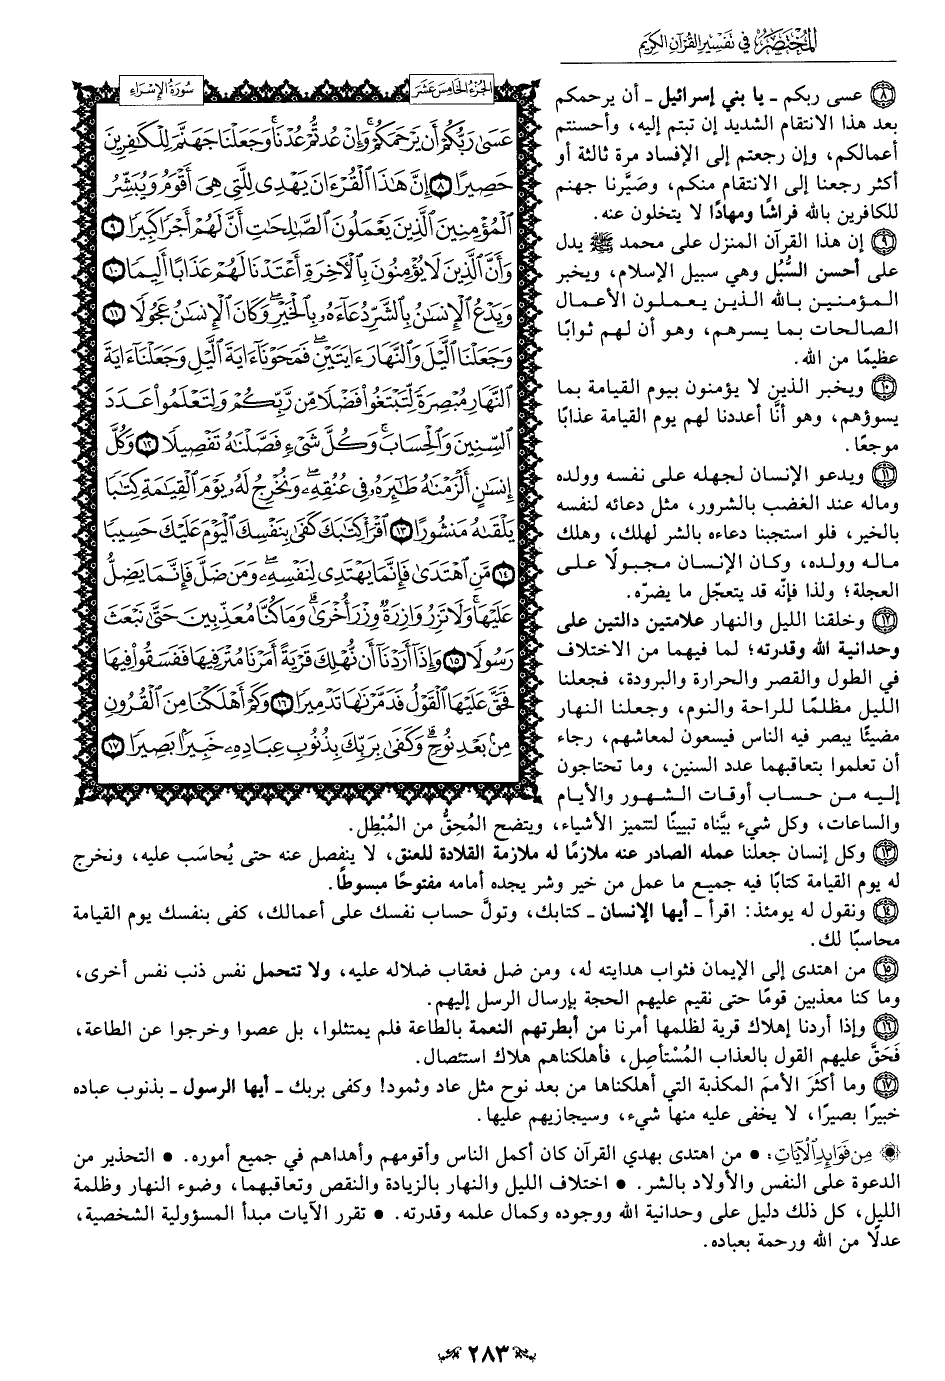 المختصر في تفسير القرآن الكريم
الجزء الخامس عشر
سورة الإسراء
عَسَىٰ رَبُّكُمْ أَن يَرْحَمَكُمْ وَإِنْ عُدتُّمْ عُدْنَا وَجَعَلْنَا جَهَنَّمَ لِلْكَٰفِرِينَ
حَصِيرًا ٨ إِنَّ هَٰذَا ٱلْقُرْءَانَ يَهْدِى لِلَّتِى هِىَ أَقْوَمُ وَيُبَشِّرُ
ٱلْمُؤْمِنِينَ ٱلَّذِينَ يَعْمَلُونَ ٱلصَّٰلِحَٰتِ أَنَّ لَهُمْ أَجْرًا كَبِيرًا ٩
وَأَنَّ ٱلَّذِينَ لَا يُؤْمِنُونَ بِٱلْءَاخِرَةِ أَعْتَدْنَا لَهُمْ عَذَابًا أَلِيمًا ١٠
وَيَدْعُ ٱلْإِنسَٰنُ بِٱلشَّرِّ دُعَآءَهُۥ بِٱلْخَيْرِ وَكَانَ ٱلْإِنسَٰنُ عَجُولًا ١١
وَجَعَلْنَا ٱلَّيْلَ وَٱلنَّهَارَ ءَايَتَيْنِ فَمَحَوْنَآ ءَايَةَ ٱلَّيْلِ وَجَعَلْنَآ ءَايَةَ
ٱلنَّهَارِ مُبْصِرَةً لِّتَبْتَغُوا۟ فَضْلًا مِّن رَّبِّكُمْ وَلِتَعْلَمُوا۟ عَدَدَ
ٱلسِّنِينَ وَٱلْحِسَابَ وَكُلَّ شَىْءٍ فَصَّلْنَٰهُ تَفْصِيلًا ١٢ وَكُلَّ
إِنسَٰنٍ أَلْزَمْنَٰهُ طَٰٓئِرَهُۥ فِى عُنُقِهِۦ وَنُخْرِجُ لَهُۥ يَوْمَ ٱلْقِيَٰمَةِ كِتَٰبًا
يَلْقَىٰهُ مَنشُورًا ١٣ ٱقْرَأْ كِتَٰبَكَ كَفَىٰ بِنَفْسِكَ ٱلْيَوْمَ عَلَيْكَ حَسِيبًا
١٤ مَّنِ ٱهْتَدَىٰ فَإِنَّمَا يَهْتَدِى لِنَفْسِهِۦ وَمَن ضَلَّ فَإِنَّمَا يَضِلُّ
عَلَيْهَا وَلَا تَزِرُ وَازِرَةٌ وِزْرَ أُخْرَىٰ وَمَا كُنَّا مُعَذِّبِينَ حَتَّىٰ نَبْعَثَ
رَسُولًا ١٥ وَإِذَآ أَرَدْنَآ أَن نُّهْلِكَ قَرْيَةً أَمَرْنَا مُتْرَفِيهَا فَفَسَقُوا۟ فِيهَا
فَحَقَّ عَلَيْهَا ٱلْقَوْلُ فَدَمَّرْنَٰهَا تَدْمِيرًا ١٦ وَكَمْ أَهْلَكْنَا مِنَ ٱلْقُرُونِ
مِنۢ بَعْدِ نُوحٍ وَكَفَىٰ بِرَبِّكَ بِذُنُوبِ عِبَادِهِۦ خَبِيرًۢا بَصِيرًا ١٧
٨ عسى ربكم ـ يا بني إسرائيل ـ أن يرحمكم
بعد هذا الانتقام الشديد إن تبتم إليه، وأحسنتم
أعمالكم، وإن رجعتم إلى الإفساد مرة ثالثة أو
أكثر رجعنا إلى الانتقام منكم، وصَيَّرنا جهنم
للكافرين بالله فراشًا ومهادًا لا يتخلون عنه.
٩ إن هذا القرآن المنزل على محمد ﷺ يدل
على أحسن السُّبُل وهي سبيل الإسلام، ويخبر
المؤمنين بالله الذين يعملون الأعمال
الصالحات بما يسرهم، وهو أن لهم ثوابًا
عظيمًا من الله.
١٠ ويخبر الذين لا يؤمنون بيوم القيامة بما
يسوؤهم، وهو أنَّا أعددنا لهم يوم القيامة عذابًا
موجعًا.
١١ ويدعو الإنسان لجهله على نفسه وولده
وماله عند الغضب بالشرور، مثل دعائه لنفسه
بالخير، فلو استجبنا دعاءه بالشر لهلك، وهلك
ماله وولده، وكان الإنسان مجبولًا على
العجلة؛ ولذا فإنّه قد يتعجّل ما يضرّه.
١٢ وخلقنا الليل والنهار علامتين دالتين على
وحدانية الله وقدرته؛ لما فيهما من الاختلاف
في الطول والقصر والحرارة والبرودة، فجعلنا
الليل مظلمًا للراحة والنوم، وجعلنا النهار
مضيئًا يبصر فيه الناس فيسعون لمعاشهم، رجاء
أن تعلموا بتعاقبهما عدد السنين، وما تحتاجون
إليه من حساب أوقات الشهور والأيام
والساعات، وكل شيء بيَّناه تبيينًا لتتميز الأشياء، ويتضح المُحِقُّ من المُبْطِل.
١٣ وكل إنسان جعلنا عمله الصادر عنه ملازمًا له ملازمة القلادة للعنق، لا ينفصل عنه حتى يُحاسَب عليه، ونخرج
له يوم القيامة كتابًا فيه جميع ما عمل من خير وشر يجده أمامه مفتوحًا مبسوطًا.
١٤ ونقول له يومئذ: اقرأ ـ أيها الإنسان ـ كتابك، وتولَّ حساب نفسك على أعمالك، كفى بنفسك يوم القيامة
محاسبًا لك.
١٥ من اهتدى إلى الإيمان فثواب هدايته له، ومن ضل فعقاب ضلاله عليه، ولا تتحمل نفس ذنب نفس أخرى،
وما كنا معذبين قومًا حتى نقيم عليهم الحجة بإرسال الرسل إليهم.
١٦ وإذا أردنا إهلاك قرية لظلمها أمرنا من أبطرتهم النعمة بالطاعة فلم يمتثلوا، بل عصوا وخرجوا عن الطاعة،
فَحَقَّ عليهم القول بالعذاب المُسْتأصِل، فأهلكناهم هلاك استئصال.
١٧ وما أكثَرَ الأممَ المكذبة التي أهلكناها من بعد نوح مثل عاد وثمود! وكفى بربك ـ أيها الرسول ـ بذنوب عباده
خبيرًا بصيرًا، لا يخفى عليه منها شيء، وسيجازيهم عليها.
من فوائد الآيات: • من اهتدى بهدي القرآن كان أكمل الناس وأقومهم وأهداهم في جميع أموره. • التحذير من
الدعوة على النفس والأولاد بالشر. • اختلاف الليل والنهار بالزيادة والنقص وتعاقبهما، وضوء النهار وظلمة
الليل، كل ذلك دليل على وحدانية الله ووجوده وكمال علمه وقدرته. • تقرر الآيات مبدأ المسؤولية الشخصية،
عدلًا من الله ورحمة بعباده.
٢٨٣